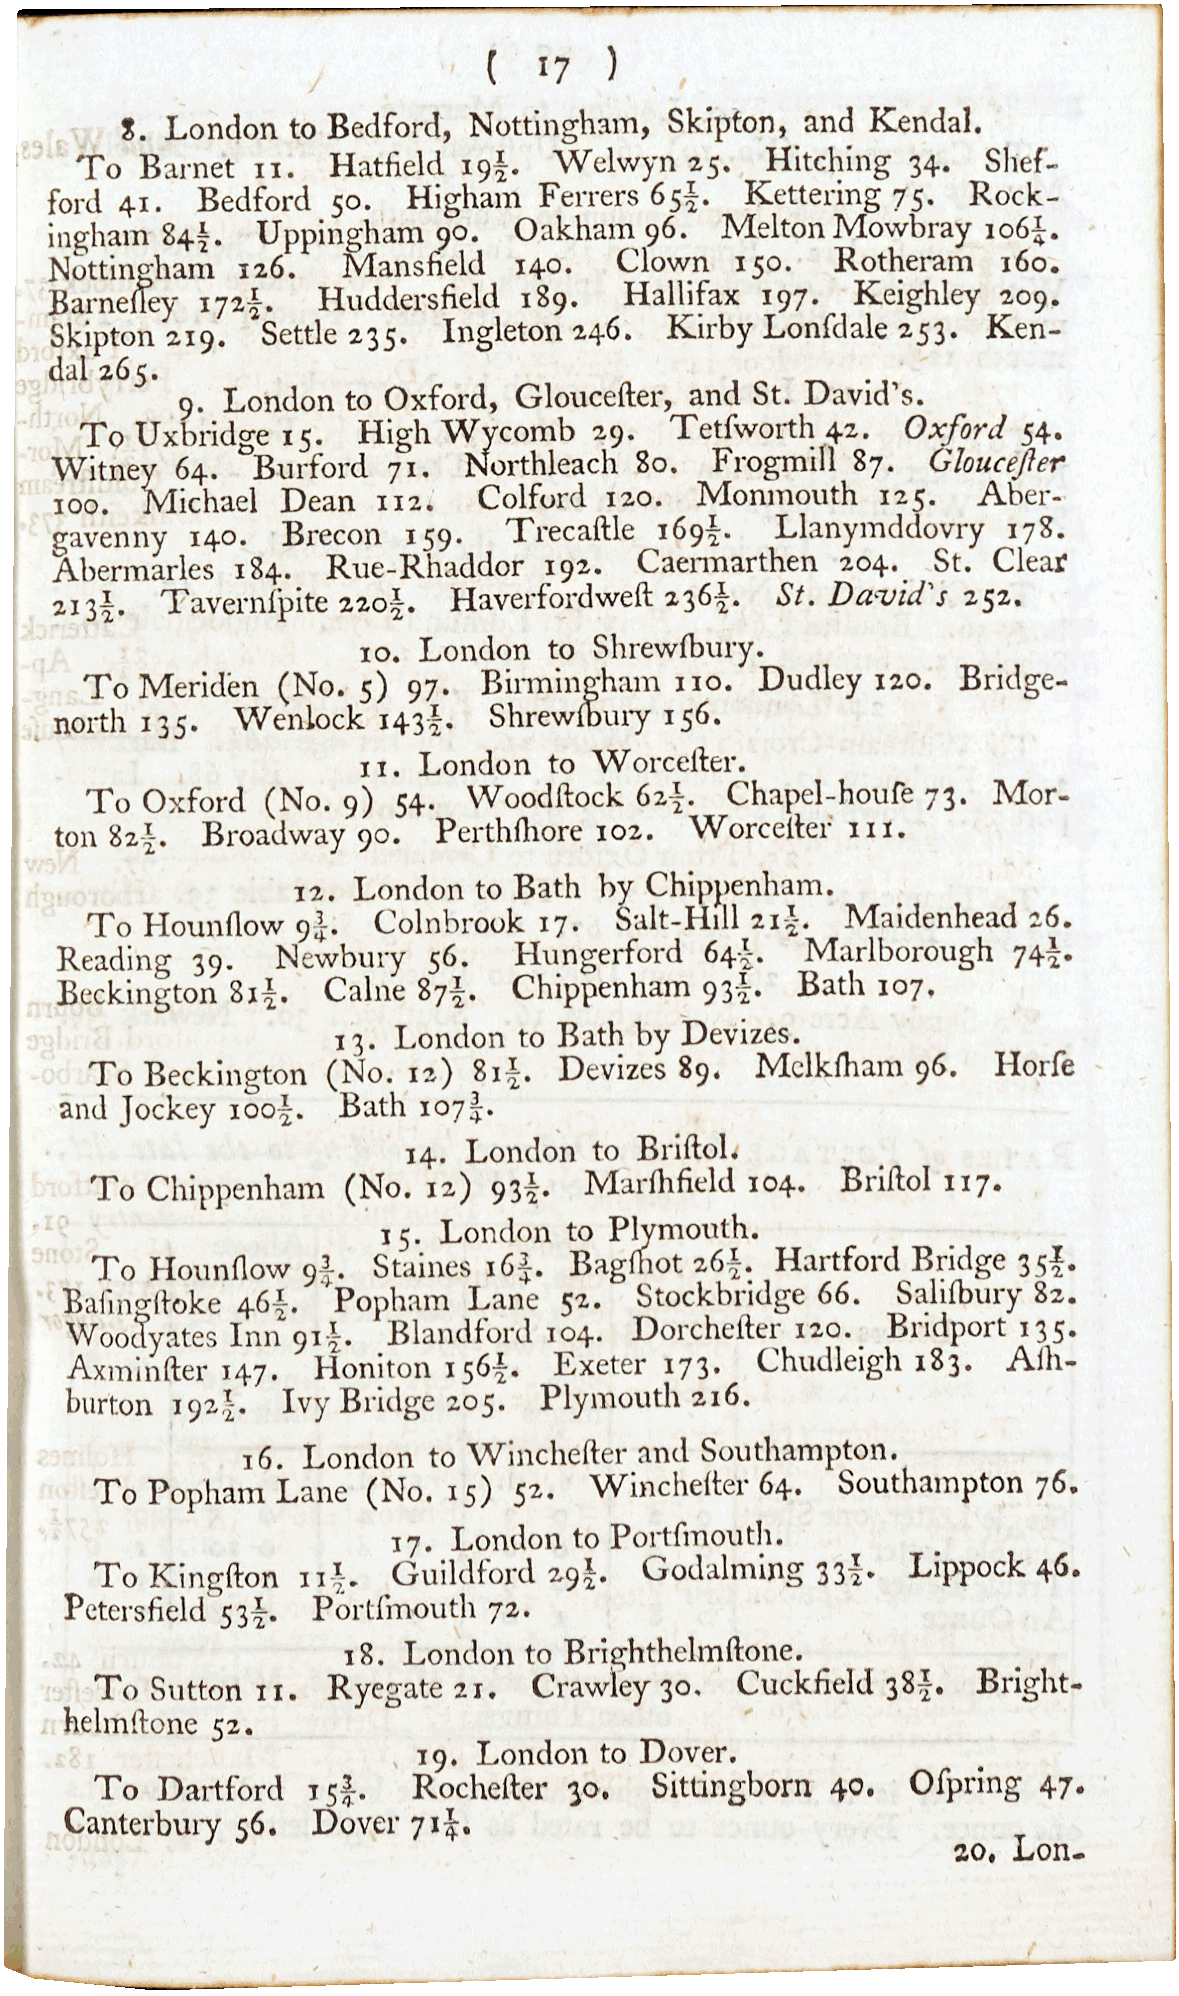 ( 17 )
8. London to Bedford, Nottingham, Skipton, and Kendal.
To Barnet 11. Hatfield 19½. Welwyn 25. Hitching 34. Shef-
ford 41. Bedford 50. Higham Ferrers 65½. Kettering 75. Rock-
ingham 84½. Uppingham 90. Oakham 96. Melton Mowbray 106¼.
Nottingham 126. Mansfield 140. Clown 150. Rotheram 160.
Barneſley 172½. Huddersfield 189. Hallifax 197. Keighley 209.
Skipton 219. Settle 235. Ingleton 246. Kirby Lonſdale 253. Ken-
dal 265.
9. London to Oxford, Glouceſter, and St. David's.
To Uxbridge 15. High Wycomb 29. Tetſworth 42. Oxford 54.
Witney 64. Burford 71. Northleach 80. Frogmill 87. Glouceſter
100. Michael Dean 112. Colford 120. Monmouth 125. Aber-
gavenny 140. Brecon 159. Trecaſtle 169½. Llanymddovry 178.
Abermarles 184. Rue-Rhaddor 192. Caermarthen 204. St. Clear
213½. Tavernſpite 220½. Haverfordweſt 236½. St. David's 252.
10. London to Shrewſbury.
To Meriden (No. 5) 97. Birmingham 110. Dudley 120. Bridge-
north 135. Wenlock 143½. Shrewſbury 156.
11. London to Worceſter.
To Oxford (No. 9) 54. Woodſtock 62½. Chapel-houſe 73. Mor-
ton 82½. Broadway 90. Perthſhore 102. Worceſter 111.
12. London to Bath by Chippenham.
To Hounſlow 9¾. Colnbrook 17. Salt-Hill 21½. Maidenhead 26.
Reading 39. Newbury 56. Hungerford 64½. Marlborough 74½.
Beckington 81½. Calne 87½. Chippenham 93½. Bath 107.
13. London to Bath by Devizes.
To Beckington (No. 12) 81½. Devizes 89. Melkſham 96. Horſe
and Jockey 100½. Bath 107¾.
14. London to Briſtol.
To Chippenham (No. 12) 93½. Marſhfield 104. Briſtol 117.
15. London to Plymouth.
To Hounſlow 9¾. Staines 16¾. Bagſhot 26½. Hartford Bridge 35½.
Baſingſtoke 46½. Popham Lane 52. Stockbridge 66. Saliſbury 82.
Woodyates Inn 91½. Blandford 104. Dorcheſter 120. Bridport 135.
Axminſter 147. Honiton 156½. Exeter 173. Chudleigh 183. Aſh-
burton 192½. Ivy Bridge 205. Plymouth 216.
16. London to Wincheſter and Southampton.
To Popham Lane (No. 15) 52. Wincheſter 64. Southampton 76.
17. London to Portſmouth.
To Kingſton 11½. Guildford 29½. Godalming 33½. Lippock 46.
Petersfield 53½. Portſmouth 72.
18. London to Brighthelmſtone.
To Sutton 11. Ryegate 21. Crawley 30. Cuckfield 38½. Bright-
helmſtone 52.
19. London to Dover.
To Dartford 15¾. Rocheſter 30. Sittingborn 40. Oſpring 47.
Canterbury 56. Dover 71¼.
20. Lon-